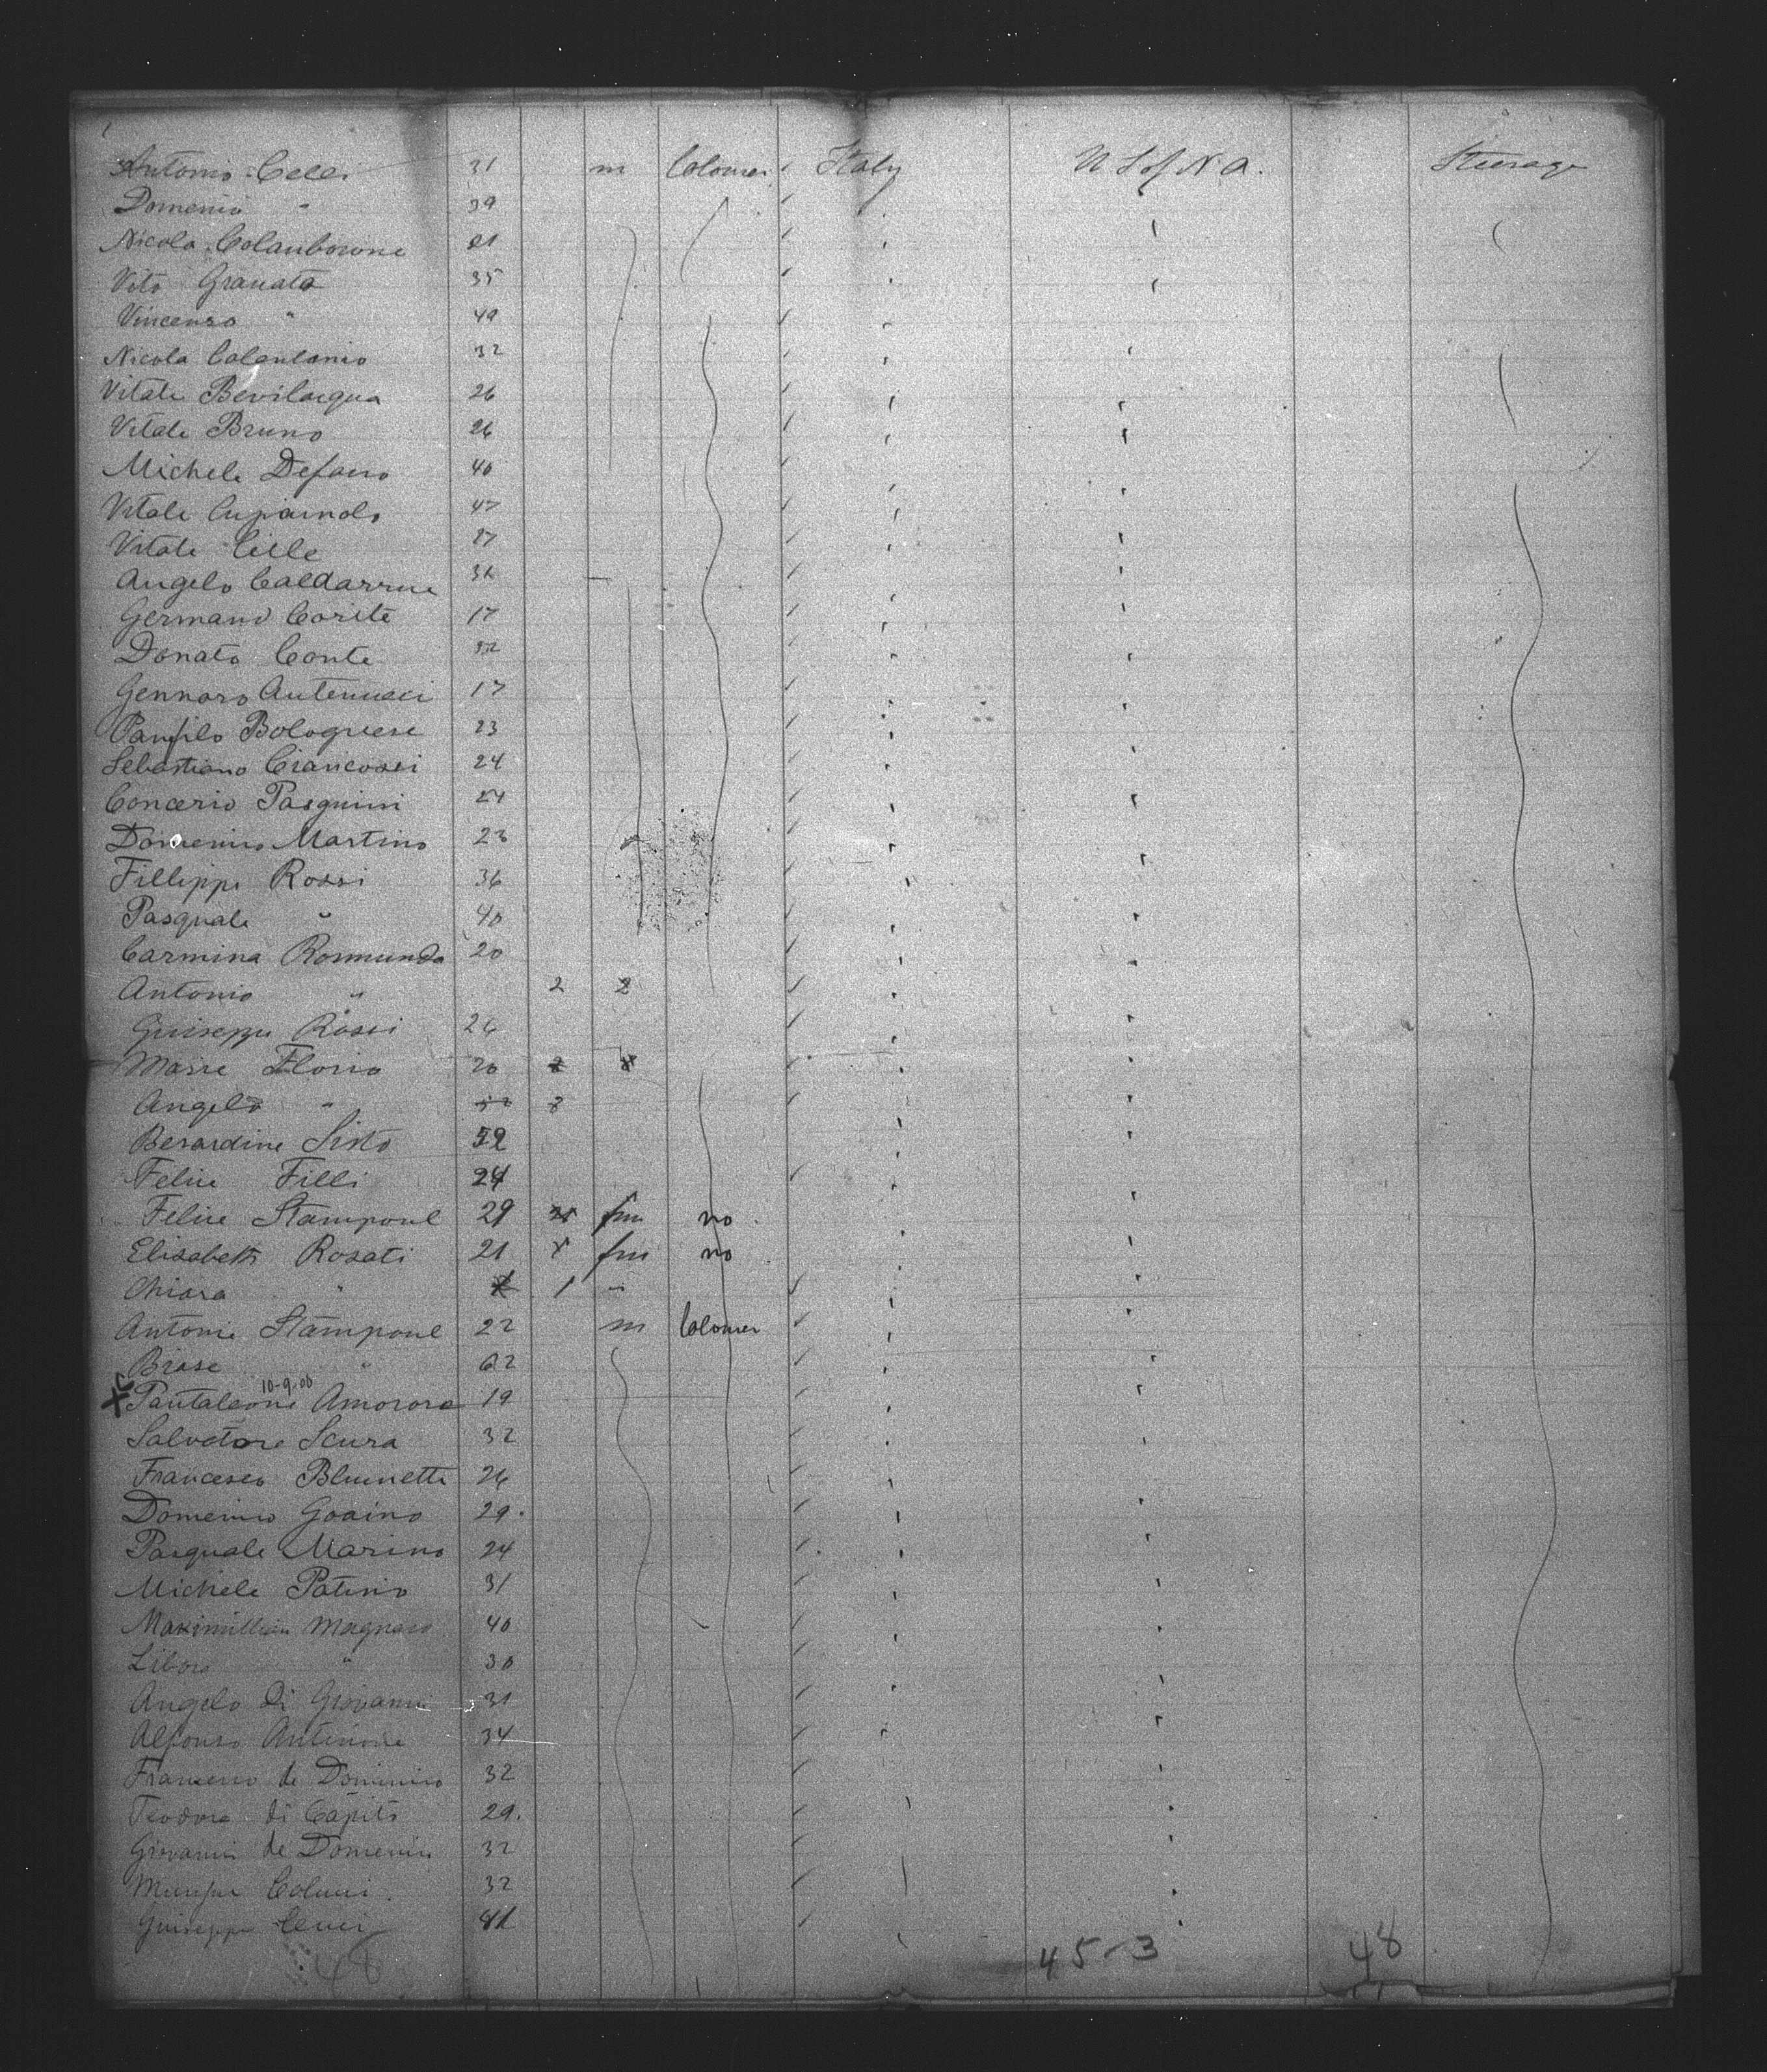 Antonio Celli 31 m Colomer Italy U S of N A. Steerage
Domenio " 39
Nicola 21
Vito Granata 35
Vincenzo " 49
Nicola Colantonio 32
Vitale Bevilacqua 26
Vitale Bruno 26
Michele Defaero 40
Vitale 47
Vitale Cille 27
Angelo 36
Germano Corite 17
Donato Conte 32
Gennaro Antenucci 17
Panfilo Bolognese 23
Sebastiano 24
Concerio Pasquini 24
Domenico Martino 23
Fillippi Rossi 36
Pasquale " 40
Carmina Rosmunda 20
Antonio " 2 2
Guiseppe Rossi 26
Masre Florio 20
Angelo " 8
Berardine Sisto 52
Felice Filli 24
Felice Stampone 29 fm no
Elisabetti Rosati 21 fm no
Chiara " 1 "
Antonie Stampone 22 m Colomer
Biase " 62
10-9-06
X Pantaleone Amorora 19
Salvatore Scura 32
Francesco Blumetti 26
Domenico Goaino 29.
Pasquale Marino 24
Michele Paterio 31
Maximillian Magnaro 40
Libora " 30
Angelo Di Giovanni 31
Alfonso Antinone 34
Francesco de Dominico 32
Teodora di Capito 29.
Giovanni de Domenico 32
Colucci 32
Guiseppe
45-3 48
48